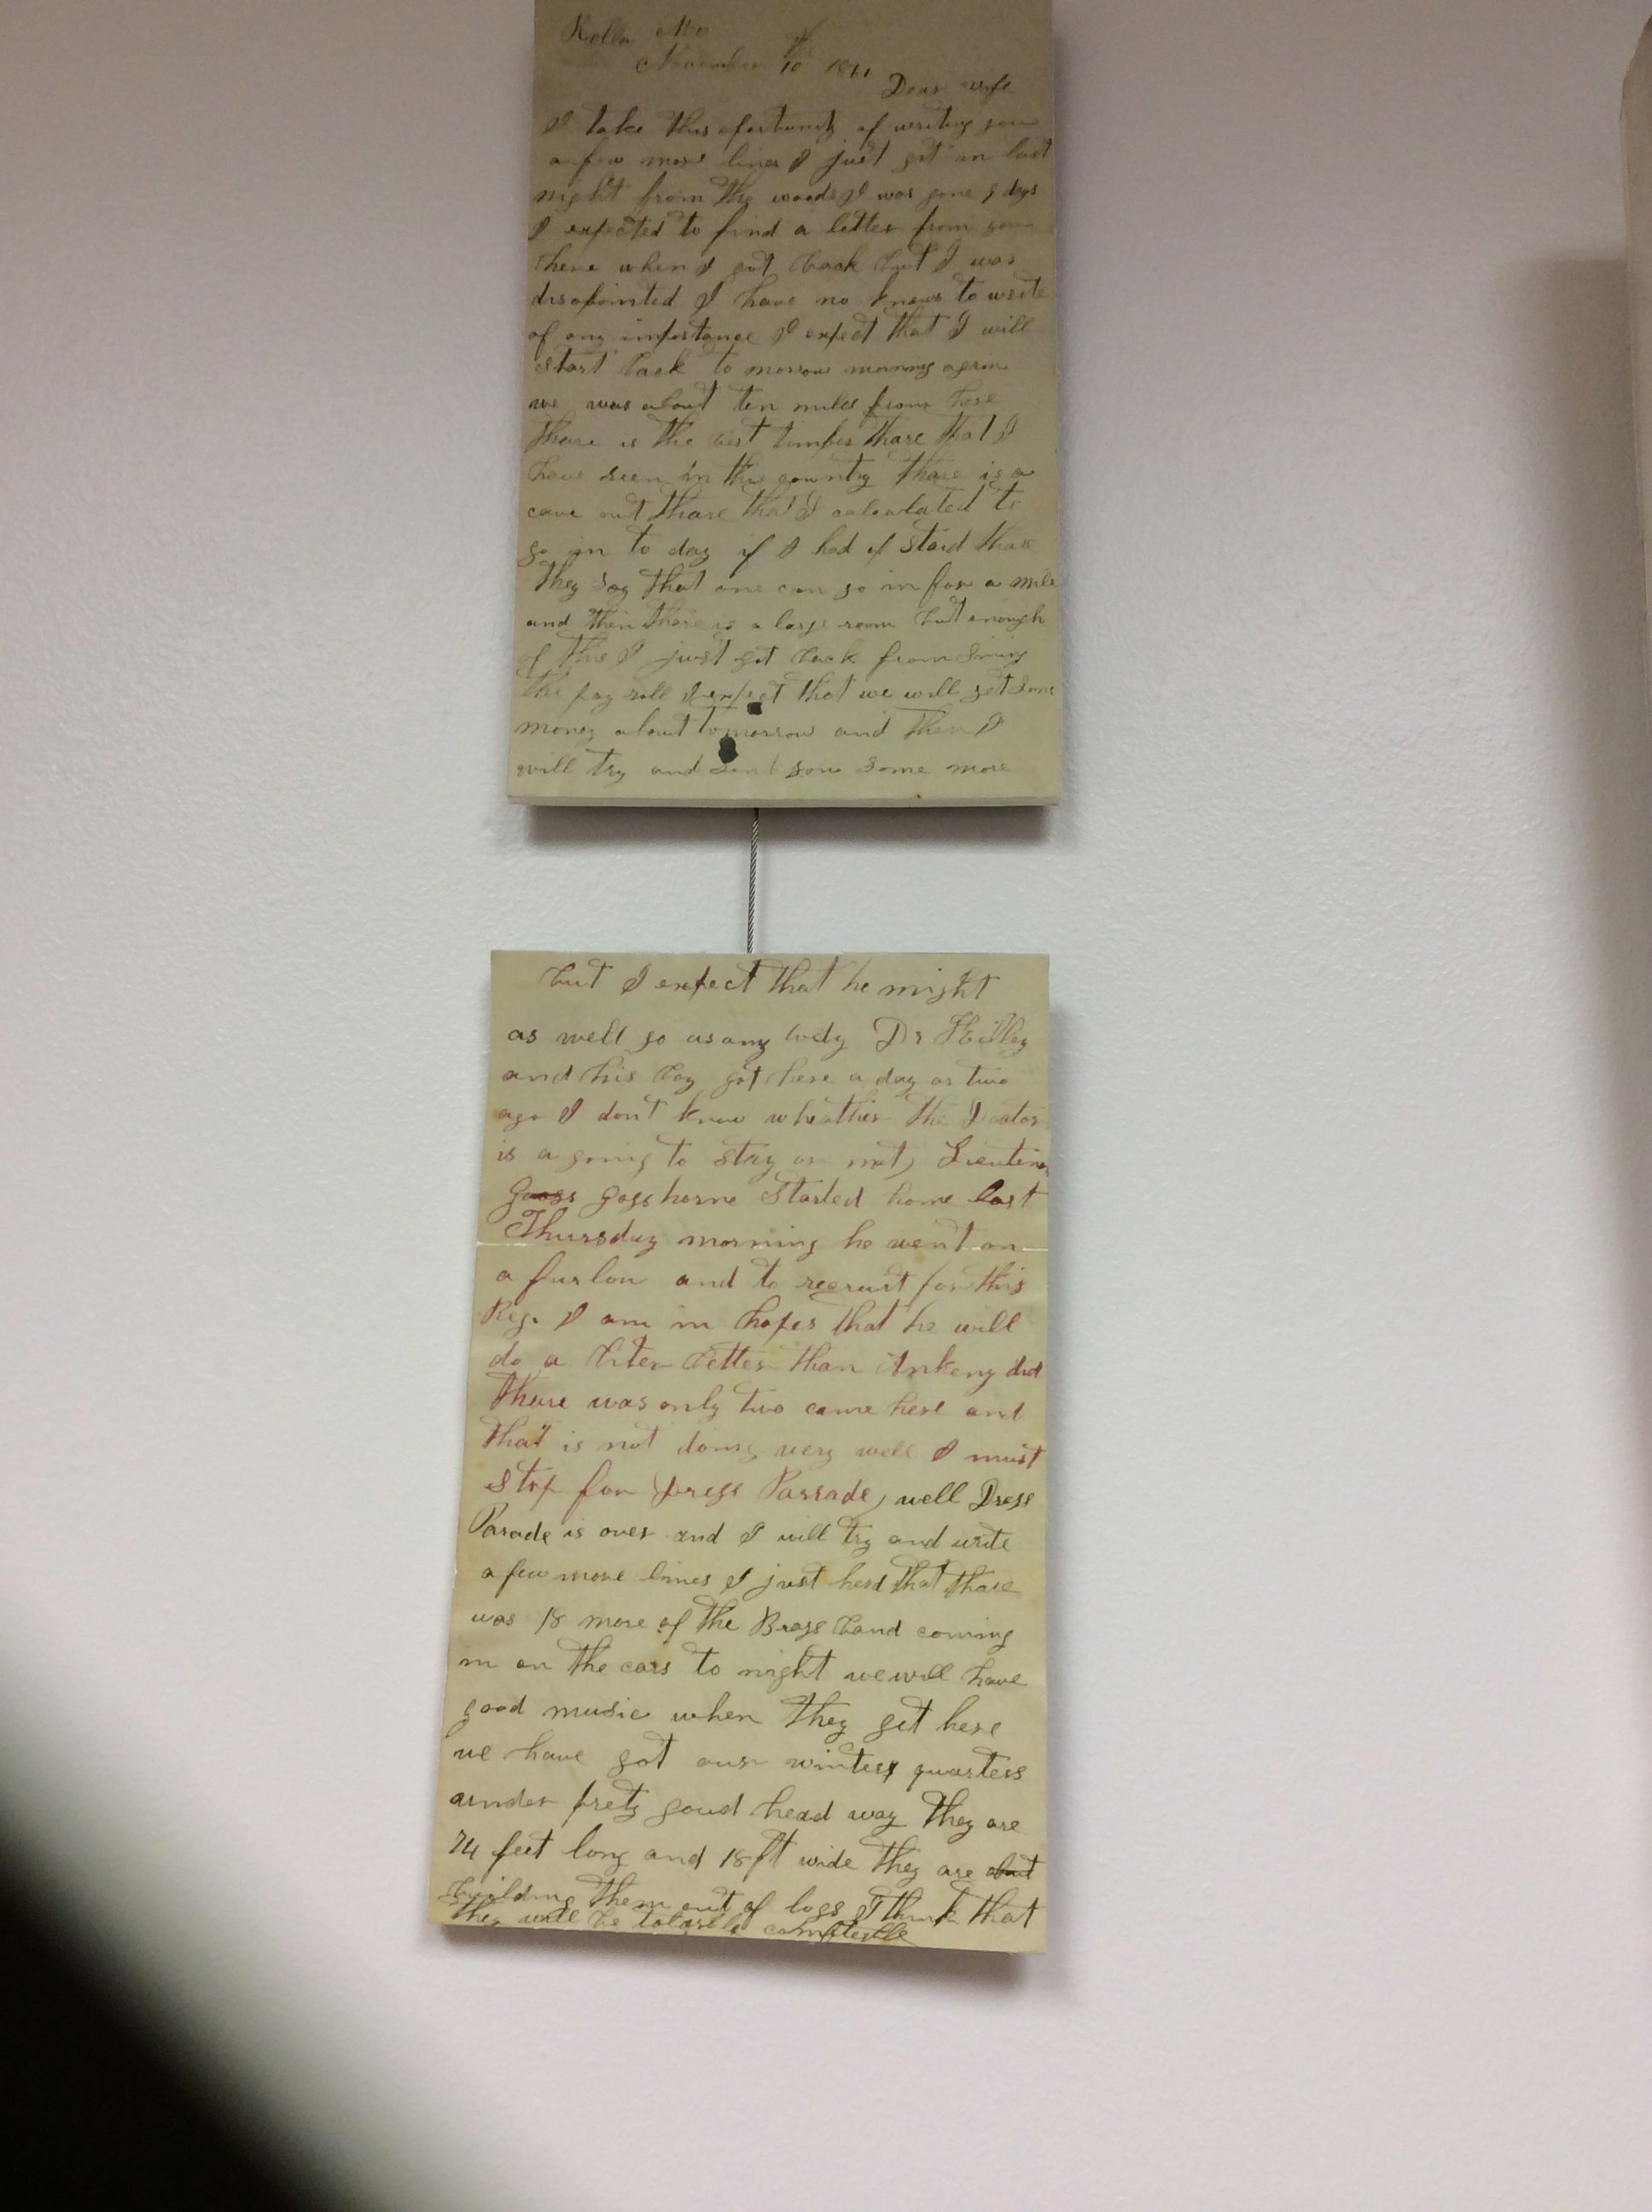 Rolla Mo
November 10th 1861
Dear wife
I take this opertunity of writing you
a few more lines I just got in last
night from the woods I was gone 9 days
I expected to find a letter from you
here when I got back but I was
disopointed I have no knews to write
of any importance I expect that I will
start back to morrow morning again
we was about ten miles from here
thare is the best timber thare that I
have seen in this country thare is a
cave out thare that I calculated to
go in to day if I had of staid thare
they say that one can go in for a mile
and then thare is a large room but enough
of this I just got back from sining
the pay roll I expect that we will get some
money about tomorrow and then I
will try and send you some more
but I expect that he might
as well go as any body Dr
and his boy got here a day or two
ago I dont know wheather the Doctor
is a going to stay or not, Lieuten
Goss horne started home last
Thursday morning he went on
a furlou and to recruit for this
Reg. I am in hopes that he will
do a liter better than Ankeny did
thare was only two came here and
that is not doing very well I must
stop for Dress Parrade, well Dress
Parade is over and I will try and write
a few more lines I just herd that thare
was 18 more of the Brass band coming
in on the cars to night we will have
good music when they get here
we have got our winter quarters
under prety goud head way they are
74 feet long and 18 ft wide they are
building them out of logs I think that
they will be tolarble